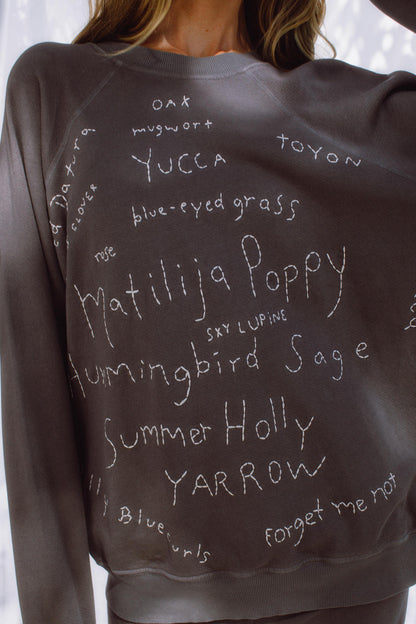 OAK
mugwort
TOYON
YUCCA
Datura
CLOVER
blue-eyed grass
rose
Matilija Poppy
SKY LUPINE
Hummingbird Sage
Summer Holly
YARROW
Forget me not
lly Bluecurls